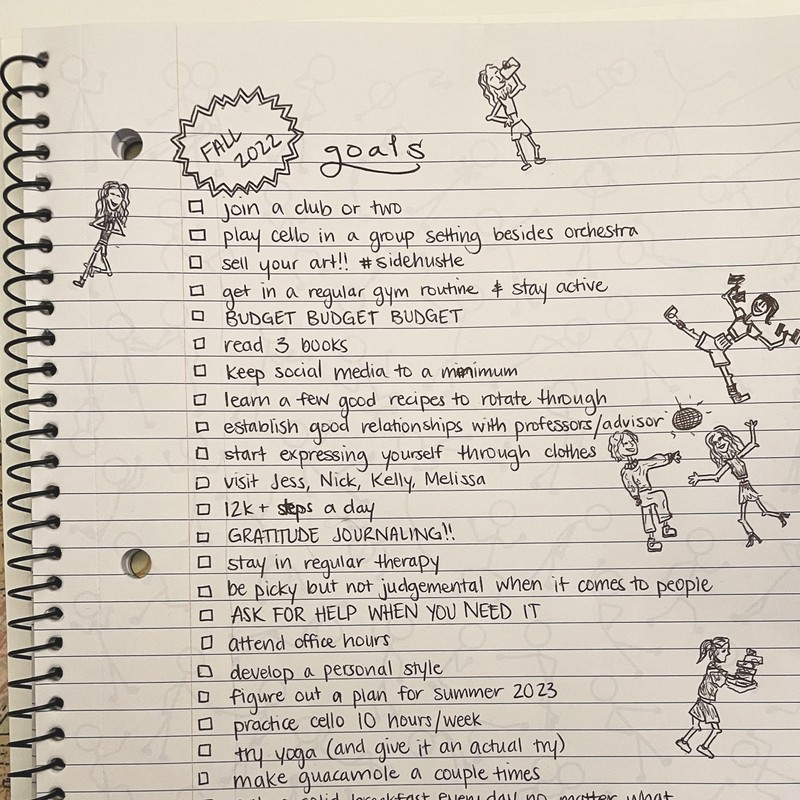 FALL
2022
goals
join a club or two
play cello in a group setting besides orchestra
sell your art!! #sidehustle
get in a regular gym routine & stay active
BUDGET BUDGET BUDGET
read 3 books
keep social media to a minimum
learn a few good recipes to rotate through
establish good relationships with professors/advisor
start expressing yourself through clothes
visit Jess, Nick, Kelly, Melissa
12k+ steps a day
GRATITUDE JOURNALING!!
stay in regular therapy
be picky but not judgemental when it comes to people
ASK FOR HELP WHEN YOU NEED IT
attend office hours
develop a personal style
figure out a plan for summer 2023
practice cello 10 hours/week
try yoga (and give it an actual try)
make guacamole a couple times
solid breakfast every day no matter what